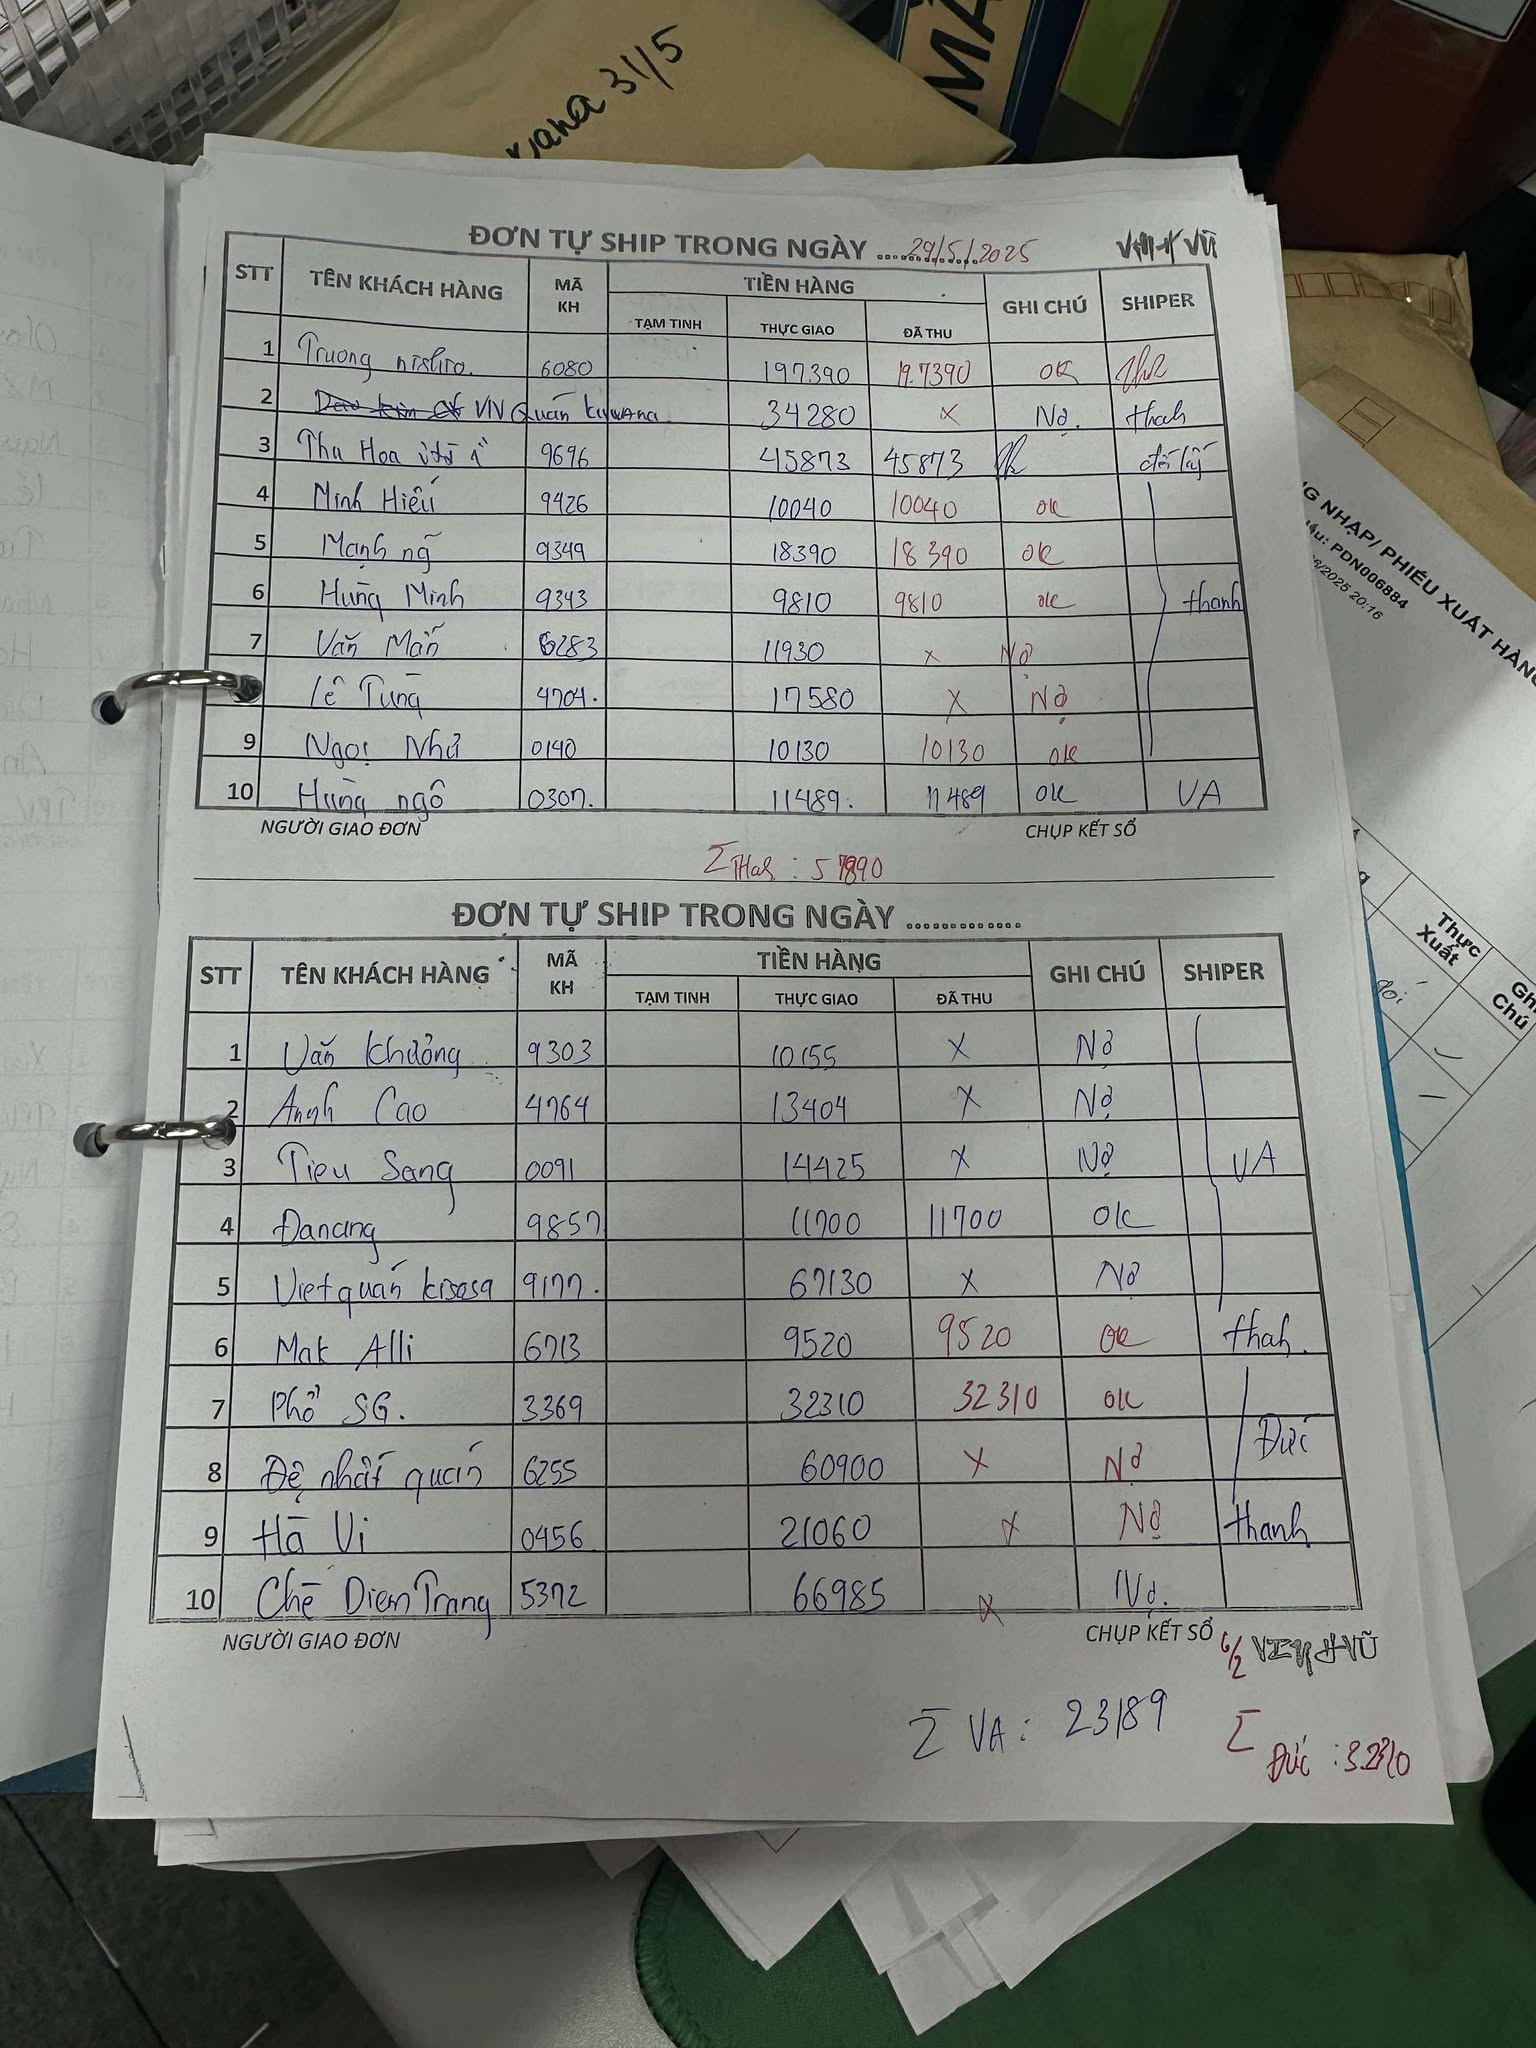 31/5
MÃ
ĐƠN TỰ SHIP TRONG NGÀY 29/5/2025
STT TÊN KHÁCH HÀNG MÃ KH TIỀN HÀNG GHI CHÚ SHIPER
TẠM TINH THỰC GIAO ĐÃ THU
1 Trương 6080 197390 197390 ok
2 VN Quán 34280 x Nợ. thanh
3 Thu Hoa 9696 45873 45873
4 Minh Hiếu 9426 10040 10040 ok
5 Mạnh ng 9349 18390 18390 ok
6 Hùng Minh 9343 9810 9810 ok thanh
7 Văn Mẫn 6283 11930 x Nợ
Lê Tùng 4704. 17580 x Nợ
9 Ngọc Nhã 0140 10130 10130 ok
10 Hùng ngô 0307. 11489. 11489 ok VA
NGƯỜI GIAO ĐƠN CHỤP KẾT SỔ
ĐƠN TỰ SHIP TRONG NGÀY .............
STT TÊN KHÁCH HÀNG MÃ KH TIỀN HÀNG GHI CHÚ SHIPER
TẠM TINH THỰC GIAO ĐÃ THU
1 Văn Khương 9303 10155 x Nợ
2 Anh Cao 4764 13404 x Nợ
3 Tieu Sang 0091 14425 x Nợ VA
4 Đanang 9857 11700 11700 ok
5 Viet quán kisasa 9177. 67130 x Nợ
6 Mak Alli 6713 9520 9520 ok thanh.
7 Phở SG. 3369 32310 32310 ok
8 Đệ nhất quán 6255 60900 x Nợ Đức
9 Hà Vi 0456 21060 x Nợ thanh
10 Chè Diem Trang 5372 66985 x Nợ.
NGƯỜI GIAO ĐƠN CHỤP KẾT SỔ
Σ VA : 23189
Σ Đức : 32310
NHẬP/ PHIẾU XUẤT HÀNG
PDN006884
2025 20:16
Thực Xuất
Chú